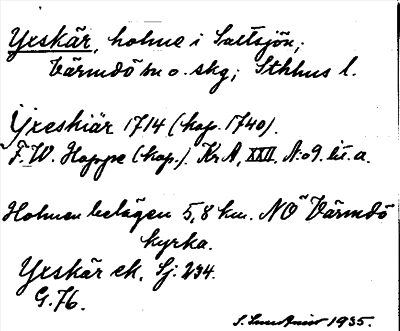 Yxskär, holme i Saltsjön;
Värmdö sn o. skg; Sthlms l.
Yxeskiär 1714 (kop. 1740).
F. W. Hoppe (kop.). KrA, XXII, N:o 9. lit. a.
Holmen belägen 5,8 km. NO Värmdö
kyrka.
Yxskär ek. Sj. 234.
G. 76.
1935.